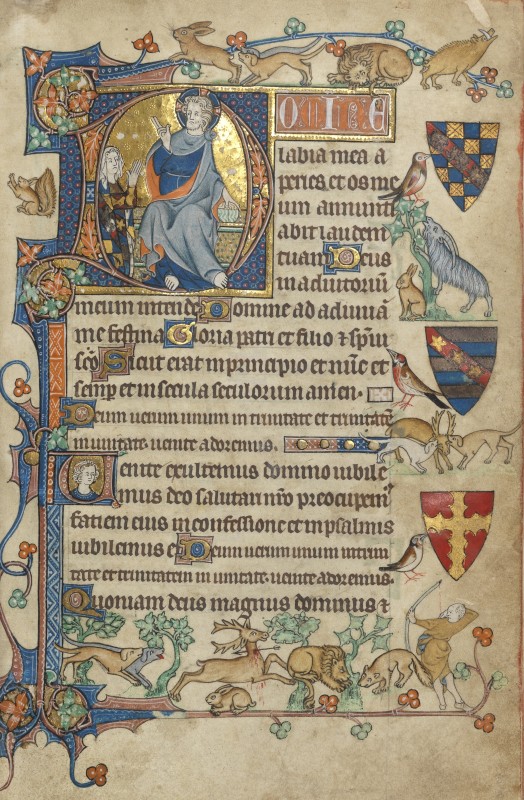 DOMINE
labia mea a
peries et os me
um annunti
abit laudem
tuam Deus
in adiutoriū
meum intende Domine ad adiuuā
me festina Gloria patri et filio & sp̄iui
sc̄o Sicut erat in principio et nūc et
semp̄ et in secula seculorum amen.
Deum uerum unum in trinitate et trinitatē
in unitate. uenite adoremus.
Uenite exultemus domino iubile
mus deo salutari nr̄o preocupem'
faciem eius in confessione et in psalmis
iubilemus ei Deum uerum unum in trini
tate et trinitatem in unitate. uenite adoremus.
Quoniam deus magnus dominus &